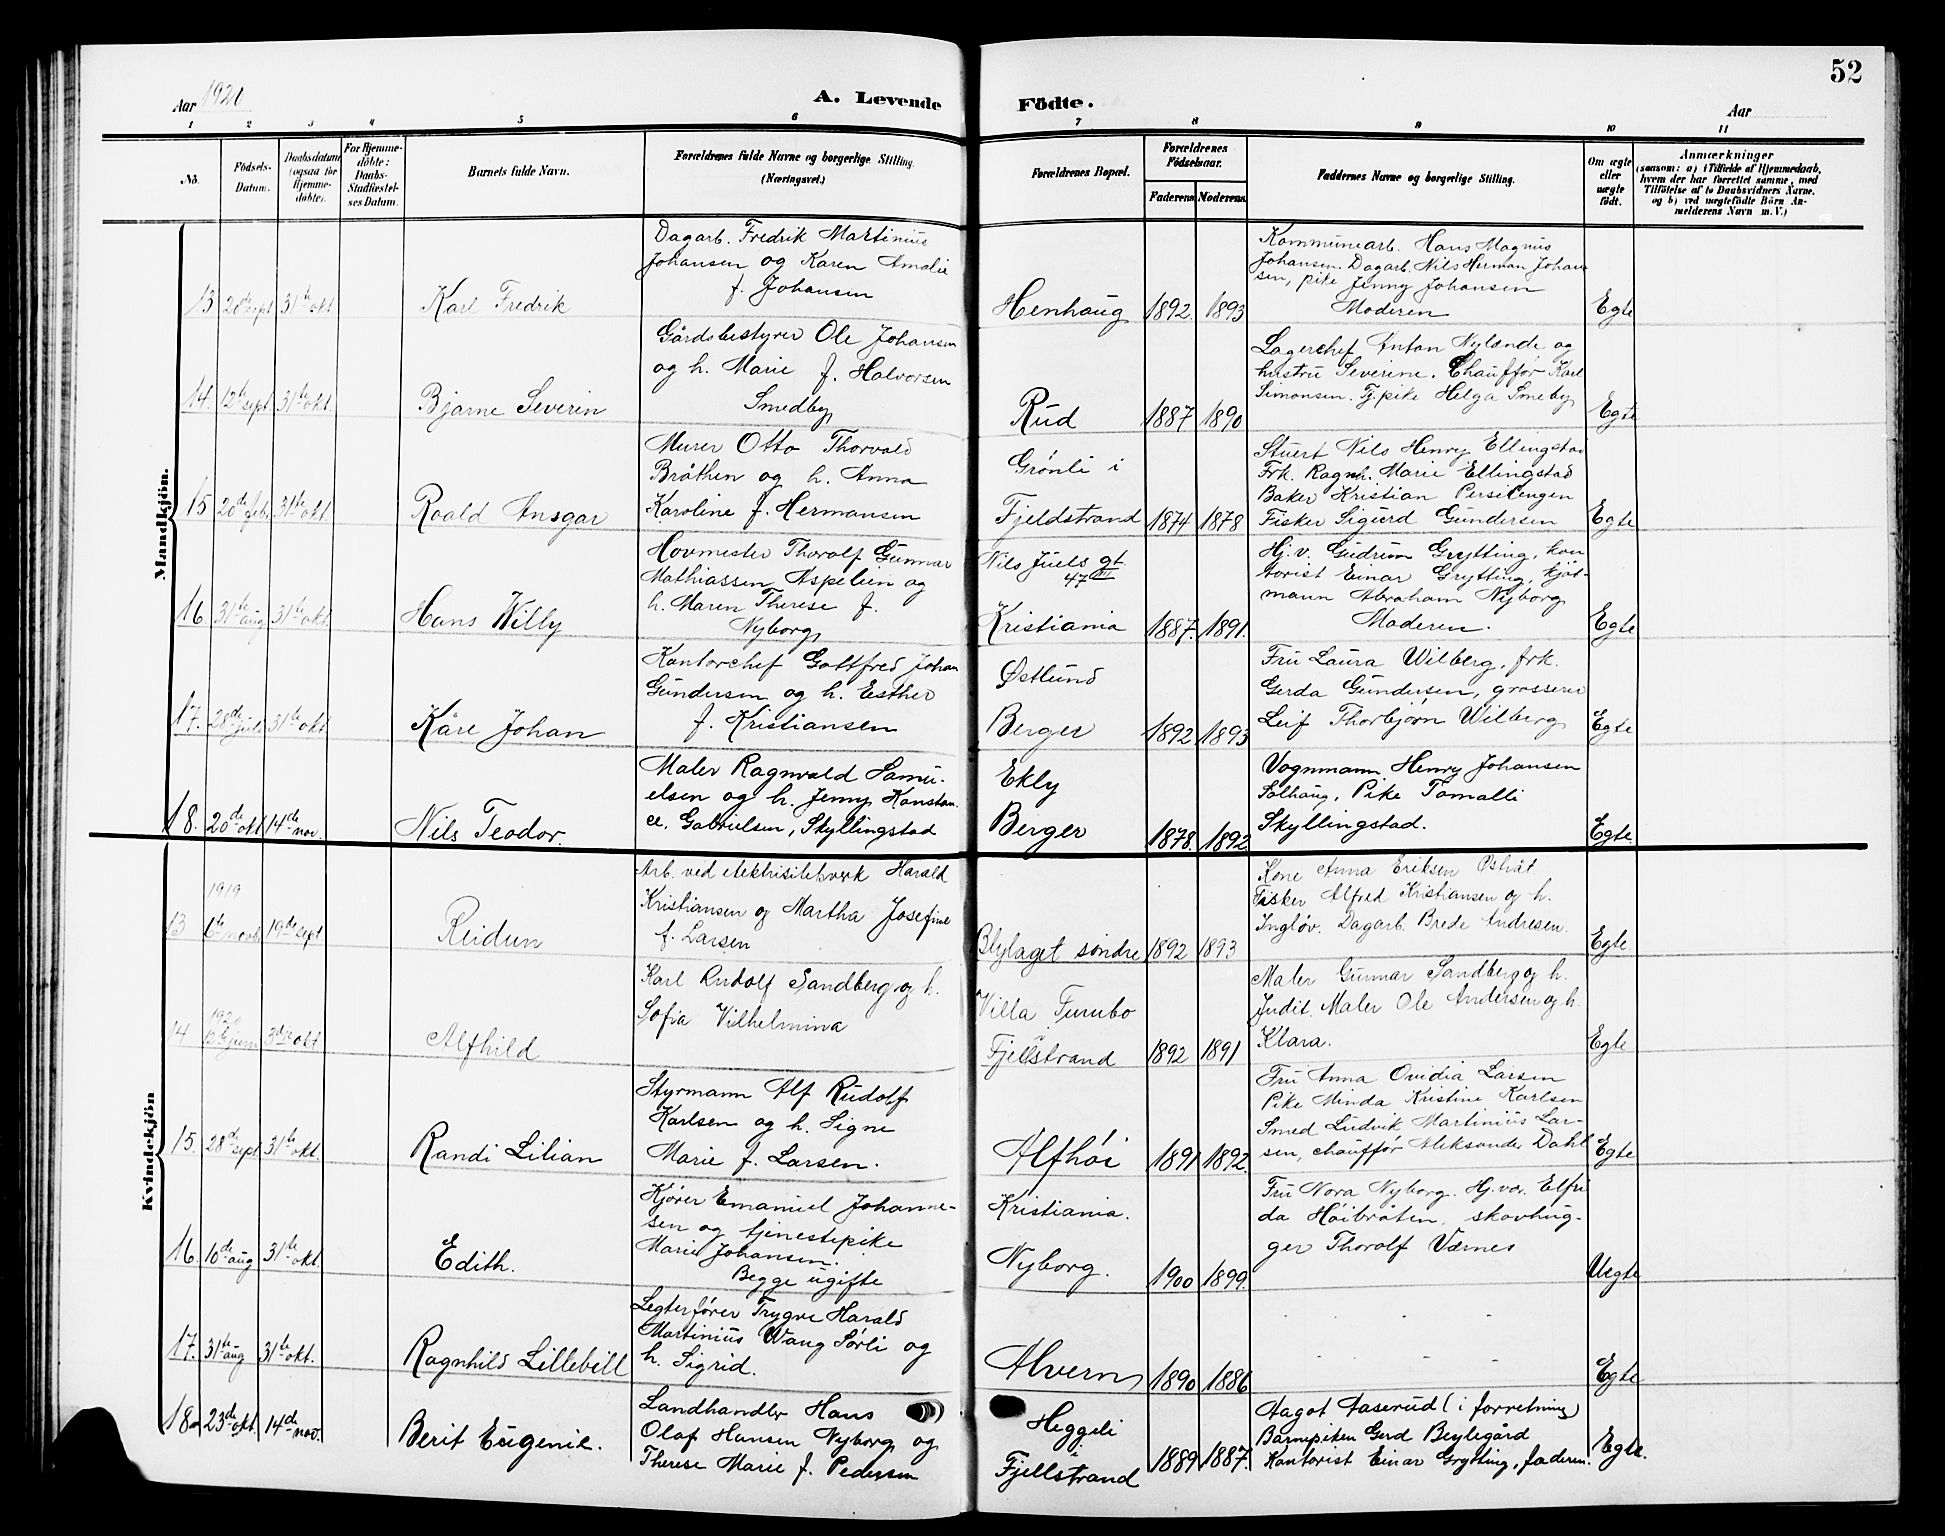 52
Aar 1920
A. Levende Födte.
Aar
1 2 3 4 5 6 7 8 9 10 11
No.
Födsels-Datum.
Daabsdatum (ogsaa for Hjemme-döbte).
For Hjemme-döbte: Daabs-Stadfæstel-ses Datum.
Barnets fulde Navn.
Forældrenes fulde Navne og borgerlige Stilling.
(Næringsvei.)
Forældrenes Bopæl.
Forældrenes Födselsaar.
Faderens Moderens
Faddernes Navne og borgerlige Stilling.
Om ægte eller uægte födt.
Anmærkninger
(saasom: a) i Tilfælde af Hjemmedaab,
hvem der har forrettet samme, med
Tilföielse af to Daabsvidners Navne,
og b) ved uægtefödte Börn An-
melderens Navn m. V.)
Mandkjön.
13 20de sept 31te okt Karl Fredrik
Dagarb. Fredrik Martinius
Johansen og Karen Amalie
f. Johansen
Henhaug 1892. 1893
Kommunearb. Hans Magnus
Johansen. Dagarb. Nils Herman Johan
sen, pike Jenny Johansen
Moderen
Egte
14. 12te sept 31te okt. Bjarne Severin
Gårdsbestyrer Ole Johansen
og h. Marie f. Halvorsen
Smedby
Rud 1887 1890
Lagerchef Anton Nylænde og
hustru Severine. Chauffør Karl
Simonsen. Tj.pike Helga Smeby
Egte
15 20de feb. 31te okt. Roald Ansgar
Murer Otto Thorvald
Bråthen og h. Anna
Karoline f. Hermansen
Grønli i
Fjeldstrand 1874 1878
Stuert Nils Henry Ellingstad
Frk. Ragnh. Marie Ellingstad
Baker Kristian Persetengen
Fisker Sigurd Gundersen
Egte
16. 31te aug 31te okt. Hans Willy
Hovmester Thorolf Gunnar
Mathiassen Aspelin og
h. Maren Therese f.
Nyborg
Nils Juels gt.
47 III
Kristiania 1887. 1891.
Hj. v. Gudrun Grytting, kon
torist Einar Grytting, kjøt-
mann Abraham Nyborg
Moderen.
Egte
17. 28de juli 31te okt. Kåre Johan
Kontorchef Gottfred Johan
Gundersen og h. Esther
f. Kristiansen
Østlund
Berger 1892 1893
Fru Laura Wilberg, frk.
Gerda Gundersen, grosserer
Leif Thorbjørn Wilberg
Egte
18. 20de okt 14de nov. Nils Teodor.
Maler Ragnvald Samu-
elsen og h. Jenny Konstan
ce. Gabrielsen, Skyllingstad
Ekly
Berger 1878. 1892
Vognmann Henry Johansen
Solhaug, Pike Tomalli
Skyllingstad.
Egte
Kvindekjön
13 1919 6te novb. 19de sept Reidun
Arb. ved elektrisitetsverk Harald
Kristiansen og Martha Josefine
f. Larsen
Blylaget søndre 1892 1893
Kone Anna Eriksen Østråt
Fisker Alfred Kristiansen og h.
Ingløv. Dagarb. Brede Andresen.
Egte
14 1920 juni 3die okt Alfhild
Karl Rudolf Sandberg og h.
Sofia Vilhelmina
Villa Furubo
i
Fjellstrand 1892 1891
Maler Gunnar Sandberg og h.
Judit. Maler Ole Andersen og h.
Klara.
Egte
15. 28de sept 31te okt. Randi Lilian
Styrmann Alf Rudolf
Karlsen og h. Signe
Marie f. Larsen.
Alfhøi 1891 1892.
Fru Anna Ovidia Larsen
Pike Minda Kristine Karlsen
Smed Ludvik Martinius Lar-
sen, chauffør Aleksander Dahl
Egte
16. 10de aug 31te okt. Edith.
Kjører Emanuel Johanne-
sen og tjenestepike
Marie Johansen.
Begge ugifte
Kristiania.
Nyborg. 1900 1899.
Fru Nora Nyborg. Hj.var. Elfri
da Høibråten, skovhug-
ger Thorolf Værnes
Uegte
17. 31te aug 31te okt. Ragnhild Lillebill
Legterfører Trygve Harald
Martinius Wang Sørli og
h. Sigrid.
Alvern 1890 1886
Egte
18. 23de okt. 14de nov. Berit Eugenie.
Landhandler Hans
Olaf Hansen Nyborg og
Therese Marie f. Pedersen
Heggeli
i
Fjellstrand 1889 1887.
Aagot Aaserud (i forretning)
Barnepiken Gerd Beylegård
Kontorist Einar Grytting, faderen.
Egte.